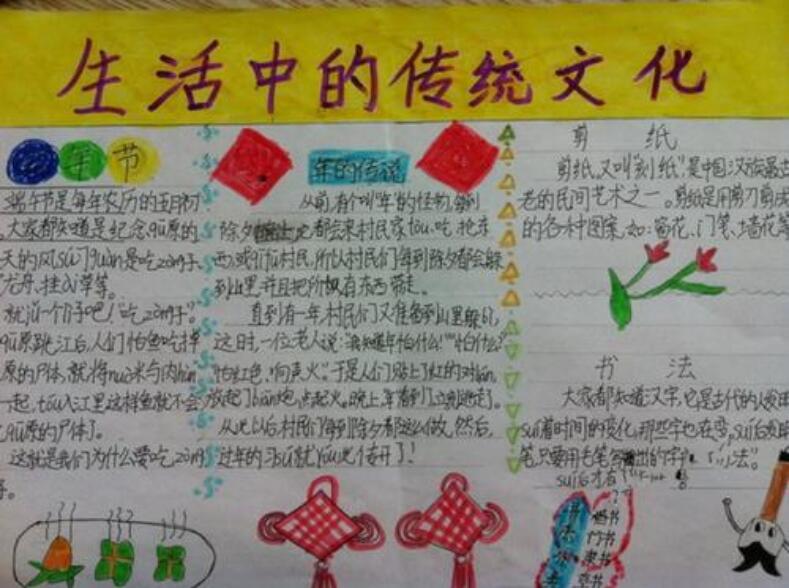 生活中的传统文化
午节
端午节是每年农历的五月初
大家都知道是纪念qū原的
天的风sú习guàn是吃zòng子、
龙舟、挂ài草等。
就以一个例子吧！“吃zòng子”。
qū原跳江后，人们怕鱼吃掉
原的尸体，就将nuò米与肉
一起，tóu入江里这样鱼就不会
qū原的尸体了。
这就是我们为什么要吃zòng
年的传说
从前，有个叫“年”的怪物，每到
除夕都会来村民家tōu吃、抢东
西，村民，所以村民们每到除夕都会躲
到山里，并且把所有东西带走。
直到有一年村民们又准备到山里躲
这日时，一位老人说：“谁知道年怕什么！”“怕什么？”
“怕红色、响声、火。”于是人们贴上红的对
放起了炮，点起火。晚上，年看到了立刻逃走了。
从此以后，村民们每到除夕都这么做，然后，
过年的习sú就这传开了！
剪纸
剪纸，又叫“刻纸”，是中国汉族最古
老的民间艺术之一。剪纸是用剪刀剪成
的各种图案，如：窗花、门笺、墙花等
书法
大家都知道汉字，它是古代的人发明
suí着时间的变化，那些字也在变，suí后发明
笔只要用毛笔写出的字
suí后才有
楷书
隶书
草书